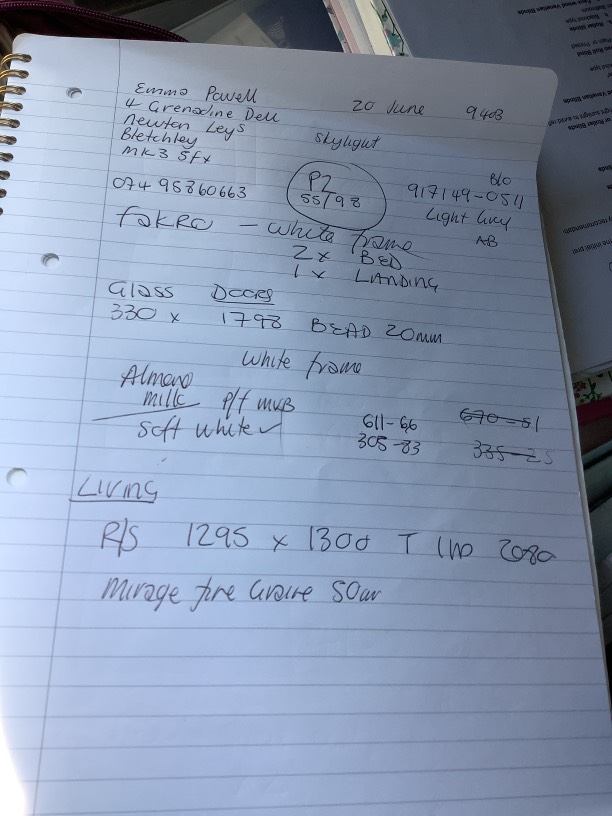 Emma Powell
4 Grenadine Dell
Newton Leys
Bletchley
MK3 5FX
20 June 9403
Skylight
07495860663
P2
55/98
B/O
917149-0511
Light Grey
AB
FAKRO - white frame
2x BED
1x LANDING
Glass Doors
330 x 1798 BEAD 20mm
White frame
Almond
milk P/f MVB
Soft white ✓
611-66
305-83
670-51
335-25
Living
R/S 1295 x 1300 T 2080
Mirage fine 50mm